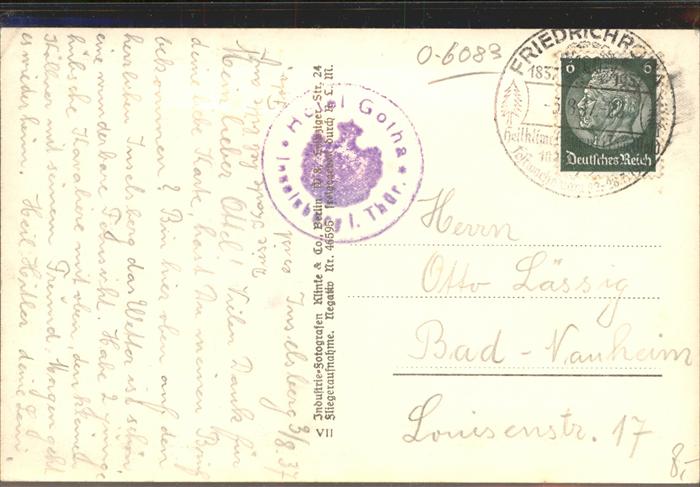 Inselsberg 3/8.37
Mein lieber Otto! Vielen Dank für
deine liebe Karte, hast Du meinen Brief
bekommen? Bin hier oben auf dem
herrlichen Inselsberg das Wetter ist schön,
eine wunderbare Fernsicht. Habe 2 junge
hübsche Kavaliere mit oben, den kleinen
Killmer mit seinem Freund, Morgen geht
es wieder heim. Heil Hitler deine
Industrie-Fotografen Klinke & Co., Berlin W 8, Leipziger Str. 24
Fliegeraufnahme. Negativ Nr. 46595 freigegeben durch R. L. M.
VII
Hotel Gotha
Inselsberg i. Thür.
0-6083
FRIEDRICHRODA
1837
6 6
Deutsches Reich
Herrn
Otto Lässig
Bad-Nauheim
Louisenstr. 17
8,-